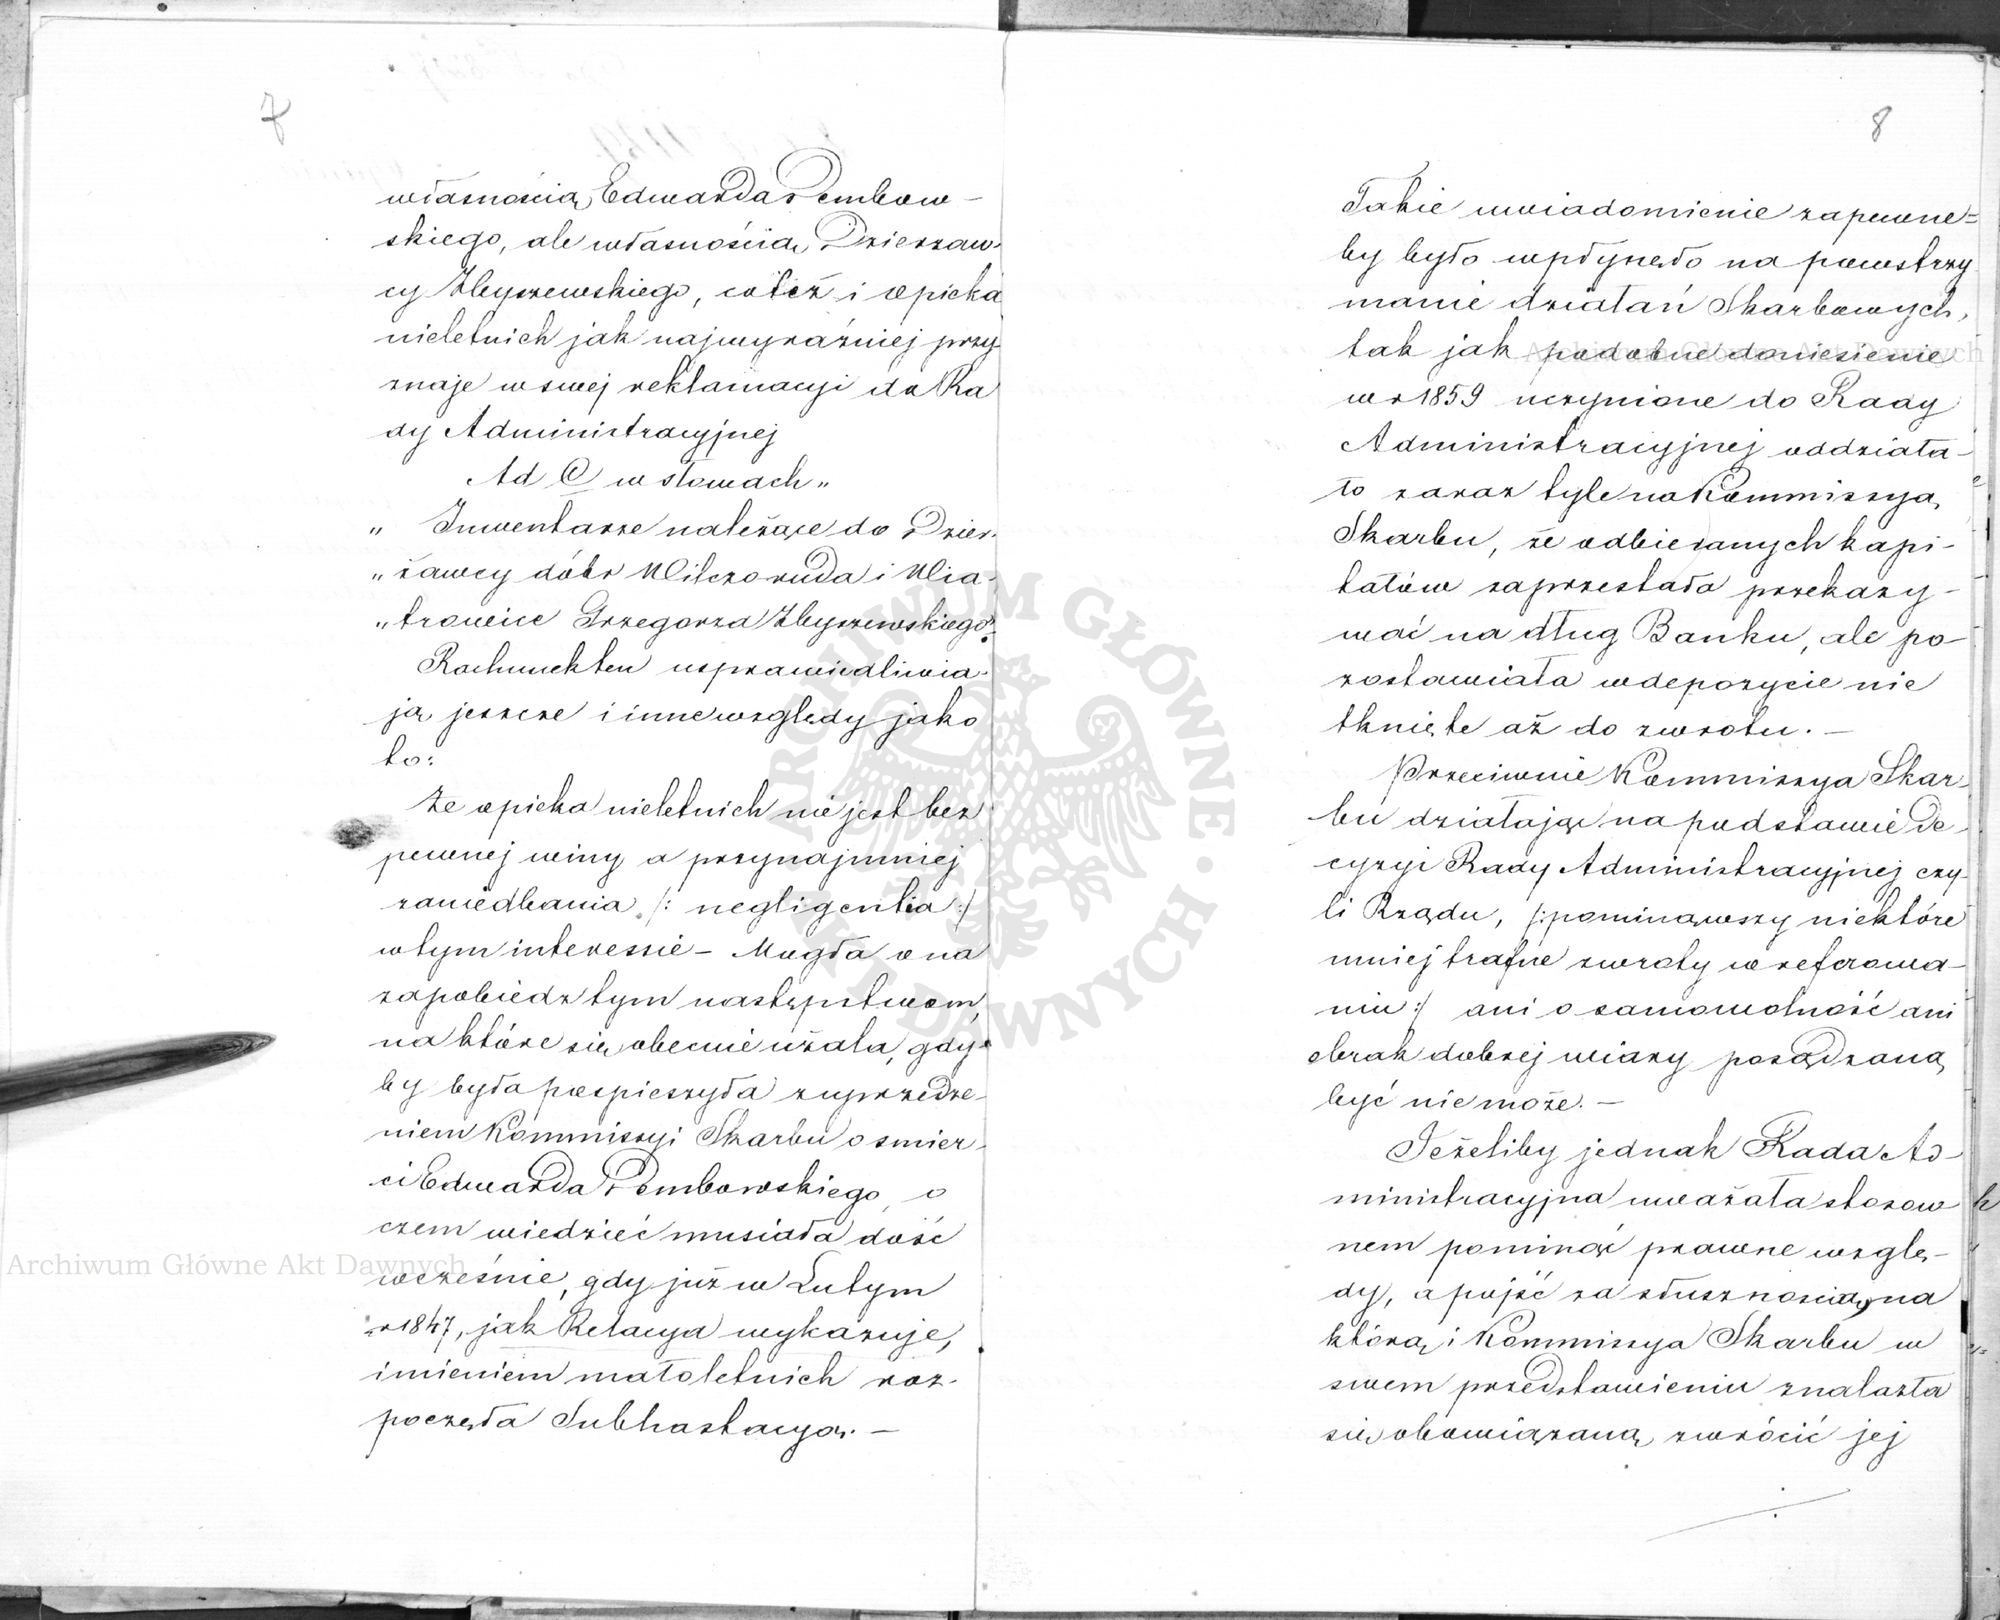 7
własnością Edwarda Dembow-
skiego, ale własnościią Dzierżaw-
cy Zbyszewskiego, coteż i opieka
nieletnich jak najwyraźniej przy
znaje w swej reklamacyi do Ra
dy Administracyjnej
Ad C w słowach "
" Inwentarze należące do Dzier-
" żawcy dóbr Wilczoruda i Wia-
" trowice Grzegorza Zbyszewskiego"
Rachunekten usprawiedliwia-
ją jeszcze i inne względy jako
to:
że opieka nieletnich nie jest bez
pewnej winy a przynajmniej
zaniedbania /: negligentia :/
wtym interessie – Mogła ona
zapobiedz tym następstwom,
na które się obecnie użala, gdy-
by była pospieszyła zuprzedze-
niem Kommissyi Skarbu o smier-
ci Edwarda Dembowskiego, o
czem wiedzieć musiała dość
wcześnie, gdy już w Lutym
r 1847, jak Relacya wykazuje,
imieniem małoletnich roz-
poczęła Subhastacyą. –
8
Takie uwiadomienie zapewne=
by było wpłynęło na powstrzy
manie działań Skarbowych,
tak jak podobne doniesienie
w r 1859 uczynione do Rady
Administracyjnej oddziała-
ło zaraz tyle na Kommissyą
Skarbu, że odbieranych kapi-
tałów zaprzestała przekazy-
wać na dług Banku, ale po-
zostawiała wdepozycie nie
tknięte aż do zwrotu. –
Przeciwnie Kommissya Skar-
bu działając na podstawie De-
cyzyi Rady Administracyjnej czy-
li Rządu, /:pominąwszy niektóre
mniej trafne zwroty w referowa-
niu:/ ani o samowolność ani
obrak dobrej wiary posądzoną
być nie może. –
Jeżeliby jednak Rada Ad-
ministracyjna uważała stosow
nem pominąć prawne wzglę-
dy, a pojść za słusznością, na
którą i Kommissya Skarbu w
swem przedstawieniu znalazła
się obowiązaną zwrócić jej
Archiwum Główne Akt Dawnych
Archiwum Główne Akt Dawnych
ARCHIWUM GŁÓWNE · AKT DAWNYCH ·